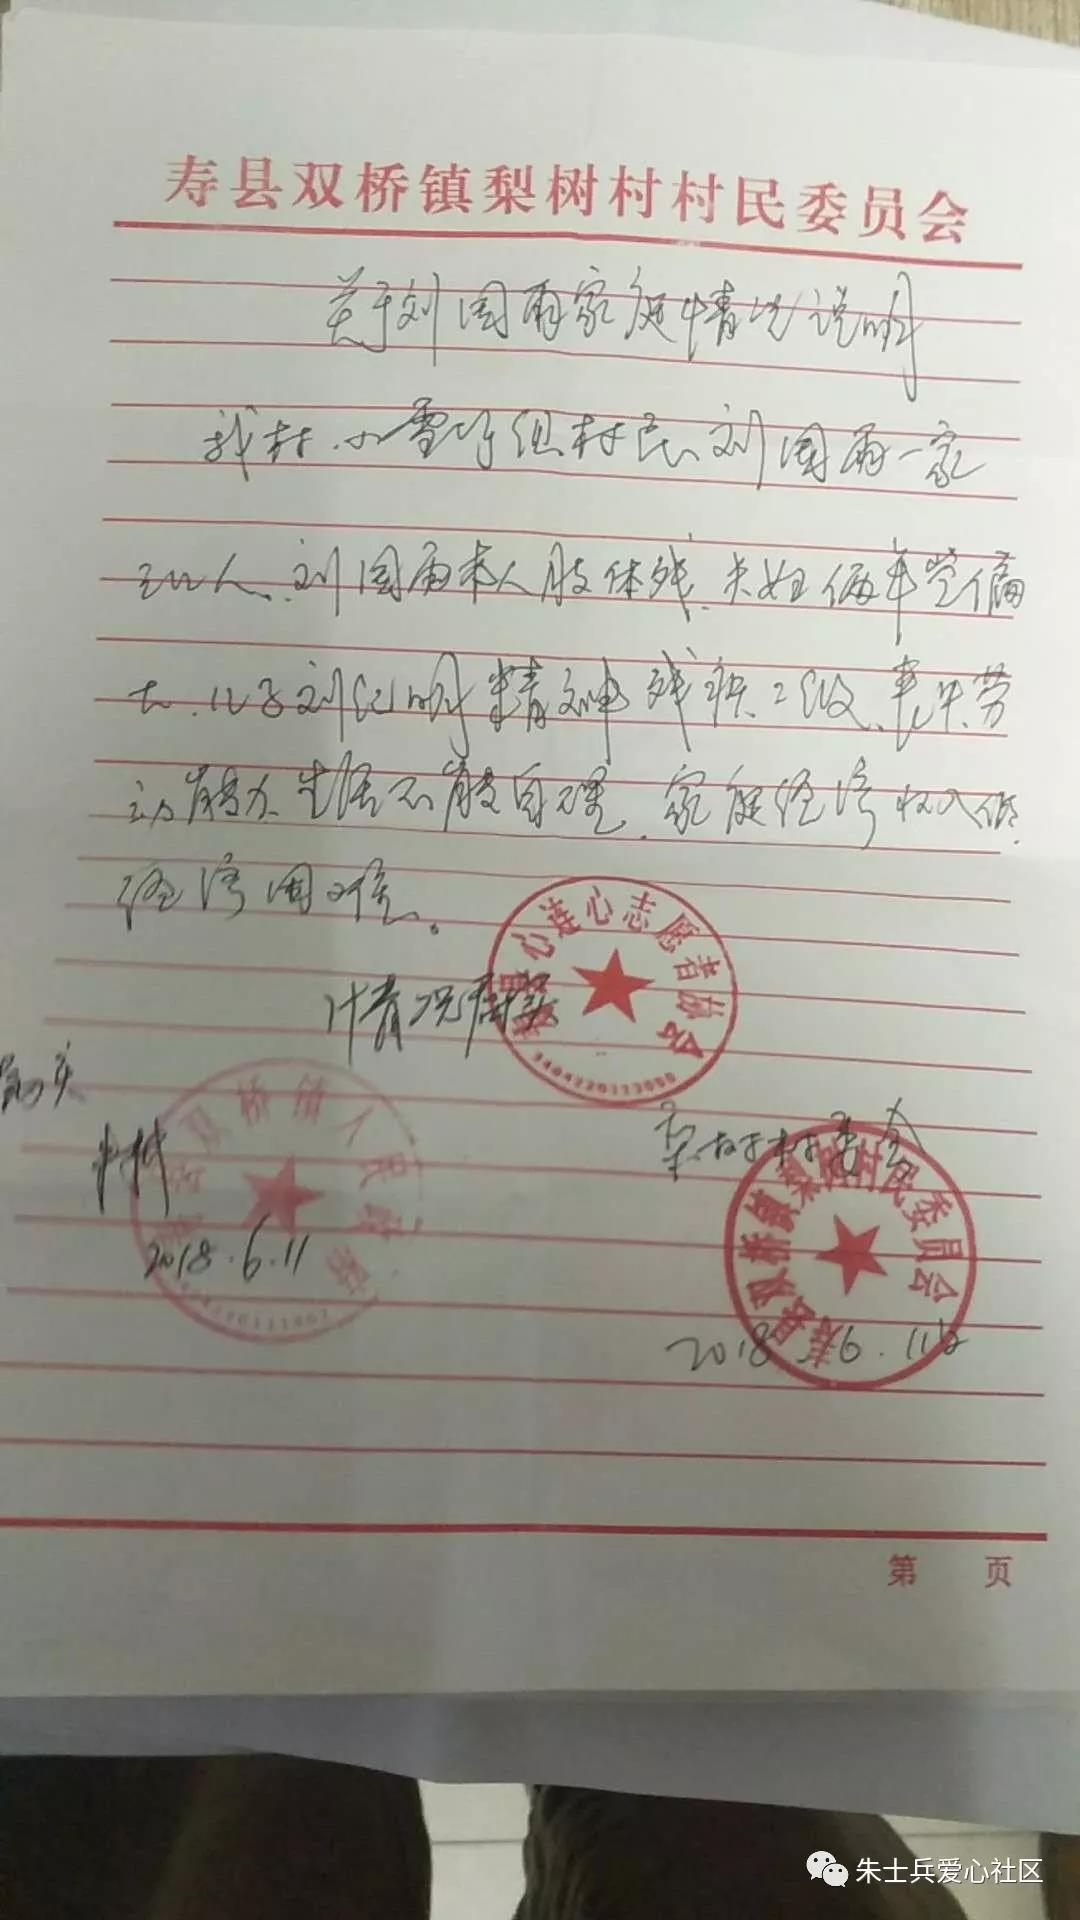 寿县双桥镇梨树村村民委员会
关于刘国雨家庭情况说明
我村小雪圩组村民刘国雨一家
三口人、刘国雨本人肢体残、夫妇俩年岁偏
大、儿子刘纪明精神残疾二级、丧失劳
动能力、生活不能自理、家庭经济收入低、
经济困难。
心连心志愿者协会
3404220123000
情况属实
情况属实
双桥镇人民政府
2018.6.11
梨树村委会
寿县双桥镇梨树村村民委员会
2018.6.11日
第 页
朱士兵爱心社区